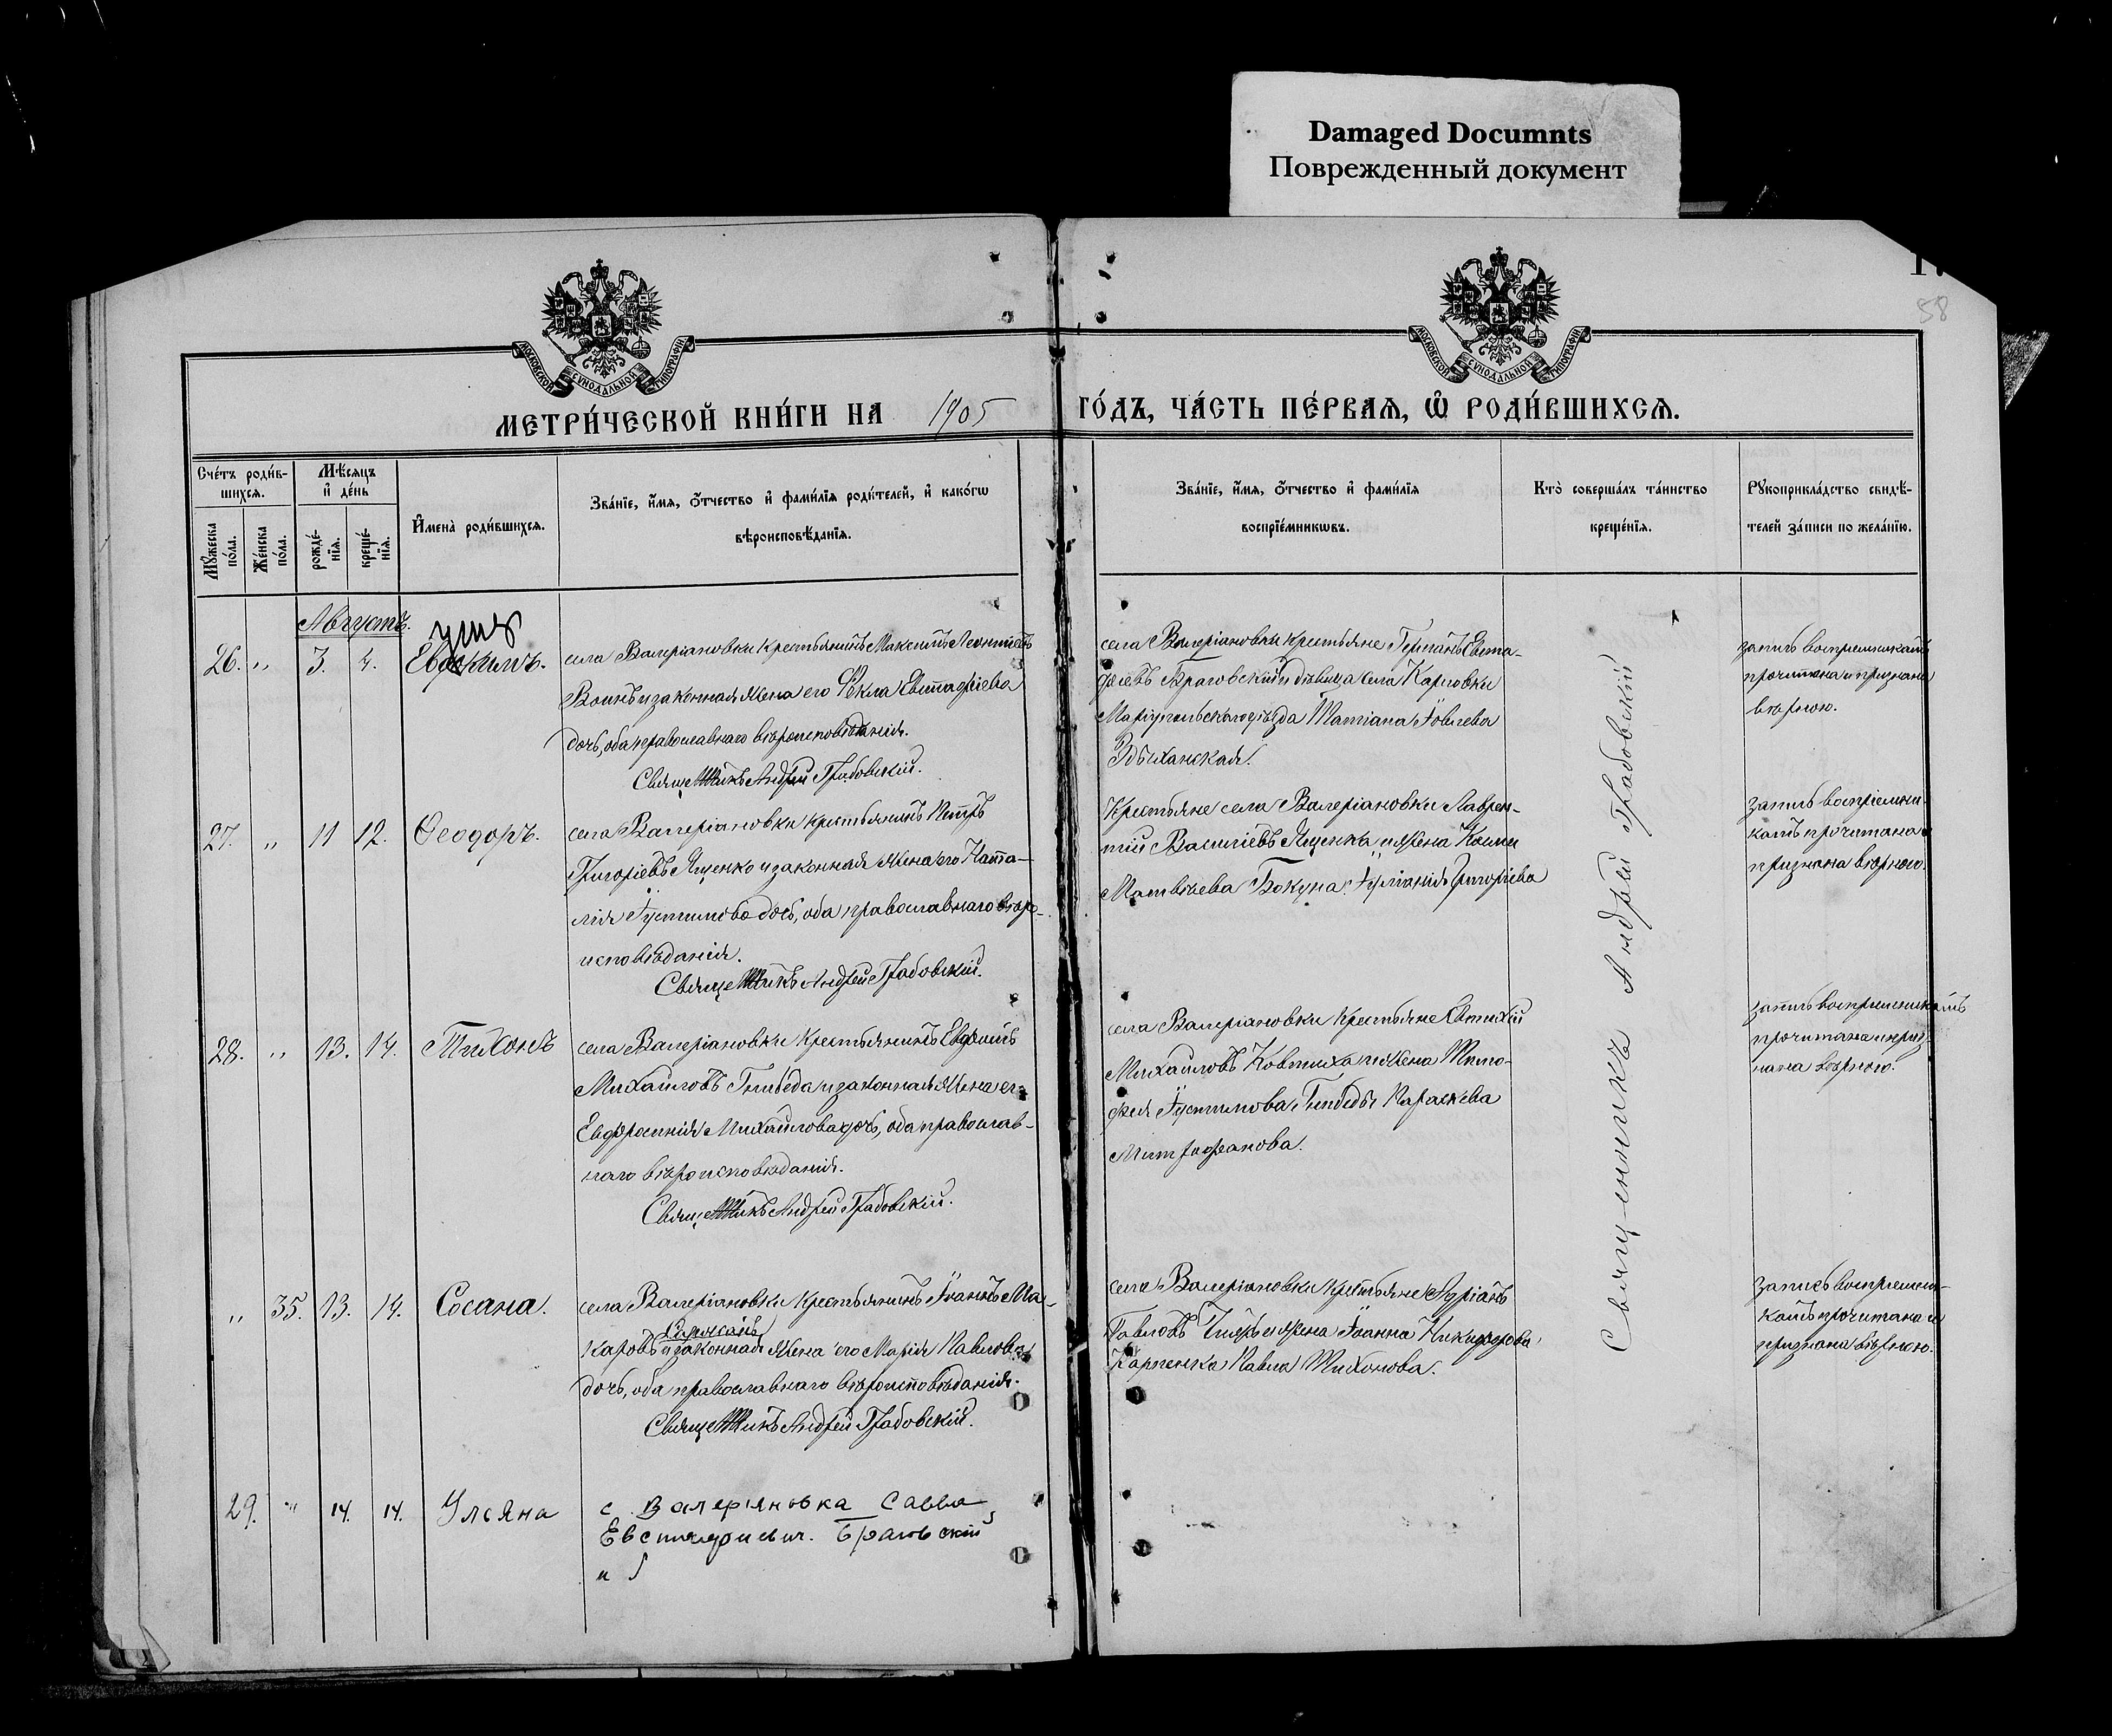 Damaged Documnts
Поврежденный документ
58
МОСКОВСКОЙ СѴНОДАЛЬНОЙ ТИПОГРАФІИ
МОСКОВСКОЙ СѴНОДАЛЬНОЙ ТИПОГРАФІИ
МЕТРИ́ЧЕСКОЙ КНИ́ГИ НА 1905 ГО́ДЪ, ЧА́СТЬ ПЕ́РВАЯ, Ѡ РОДИ́ВШИХСЯ.
Сче́тъ роди́в-
шихся.
Мѣ́сяцъ
и де́нь
Мꙋ́жеска по́ла.
Же́нска по́ла.
рожде́-
нїя.
креще́-
нїя.
Имена̀ роди́вшихся.
Зва́нїе, и́мя, о́тчество и фами́лїя роди́телей, и како́гѡ
вѣроисповѣ́данїя.
Зва́нїе, и́мя, о́тчество и фами́лїя
воспрїе́мникѡвъ.
Кто̀ соверша́лъ та́инство
креще́нїя.
Рꙋкоприкла́дство свидѣ́-
телей за́писи по жела́нїю.
Августъ.
26. „ 3. 4. Евдокимъ.
села Валеріановки крестьянинъ Максимъ Леонтіевъ
Воинъ и законная жена его Ѳекла Евстафіева
дочь, оба православнаго вѣроисповѣданія.
Священникъ Андрей Грабовскій.
села Валеріановки крестьяне Германъ Евста-
фіевъ Браговскій и дѣвица села Карловки
Маріупольскаго уѣзда Татіана Іовлева
запись воспріемникамъ
прочитана и признана
вѣрною.
27. „ 11 12. Ѳеодоръ.
села Валеріановки крестьянинъ Петръ
Григоріевъ Яценко и законная жена его Ната-
лія Іустинова дочь, оба православнаго вѣро-
исповѣданія.
Священникъ Андрей Грабовскій.
Крестьяне села Валеріановки Лаврен-
тій Василіевъ Яценко и жена Космы
Матвѣева Бокуна Іуліанія Григоріева
запись воспріемни-
камъ прочитана и
признана вѣрною.
28. „ 13. 14. Тихонъ
села Валеріановки крестьянинъ Евфимъ
Михайловъ Гнибеда и законная жена его
Евфросинія Михайлова дочь, оба православ-
наго вѣроисповѣданія.
Священникъ Андрей Грабовскій.
села Валеріановки крестьяне Евтихій
Михайловъ Ковтуха и жена Тимо-
фея Іустинова Гнибеды Параскева
Митрофанова.
запись воспріемникамъ
прочитана и приз-
нана вѣрною.
„ 35. 13. 14. Сосана.
села Валеріановки крестьянинъ Іоаннъ Ма-
каровъ и законная жена его Марія Павлова
дочь, оба православнаго вѣроисповѣданія.
Священникъ Андрей Грабовскій.
села Валеріановки крестьяне Адріанъ
Павловъ и жена Іоанна Никифорова
Карпенка Павла Тихонова.
запись воспріемни-
камъ прочитана и
признана вѣрною.
29. „ 14. 14. Ульяна
с. Валеріяновка Савва
Евстафиевич. Браговскій
и
Священникъ Андрей Грабовскій